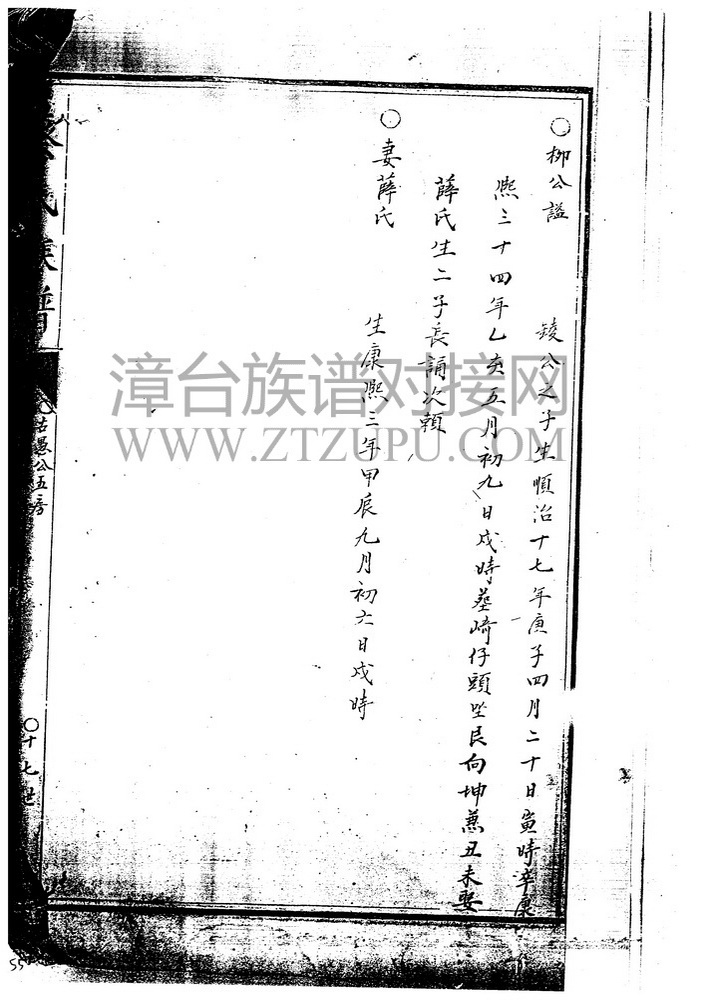 ○柳公諡
綾公之子生順治十七年庚子四月二十日寅時卒康
熙三十四年乙亥五月初九日戌時墓崎仔頭坐艮向坤兼丑未娶
薛氏生二子長誦次賴
○妻薛氏
生康熙三年甲辰九月初六日戌時
氏族譜
古愚公五房
○十七世
漳台族谱对接网
WWW.ZTZUPU.COM
55